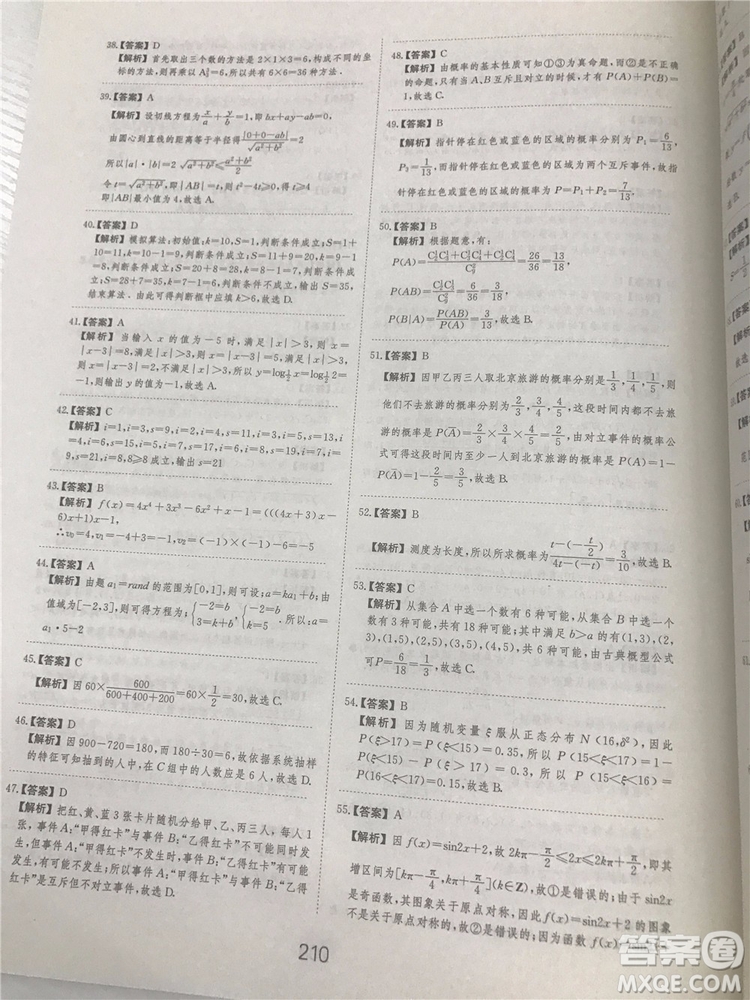 38.【答案】D
【解析】首先取出三个数的方法是 2×1×3=6,构成不同的坐
标的方法,则再乘以 A³₃=6,共有 6×6=36 种方法.
39.【答案】A
【解析】设切线方程为 x/a + y/b =1,即 bx+ay-ab=0,
由圆心到直线的距离等于半径得 |0+0-ab|/√(a²+b²)
所以|a|·|b|=2 √(a²+b²)≤
令 √(a²+b²)=|AB|=t,则 t²-4t≥0,t≥4,故
|AB|最小值为 4.故选 A.
40.【答案】D
【解析】模拟算法:初始值,k=10,S=1,判断条件成立;S=1+
10=11,k=9,判断条件成立;S=11+9=20,k=8,判断条件
成立;S=20+8=28,k=7,判断条件成立;S=28+7=35,
k=6.此时结束算法.由此可得判断框中应填入 k>6?.故选 D.
41.【答案】A
【解析】当输入 x 的值为-5 时,满足|x|>3,因而 x=
|x-3|=8,满足|x|>3,此时 x=5,满足|x|>3,则 x=
|x-3|=2,不满足|x|>3,所以 y=log½x=log½2=
-1.即输出的值为-1.故选 A.
42.【答案】C
【解析】i=1,i=3,s=9,i=2,i=4,s=11,i=3,i=5,s=13,i
=4,i=6,s=15,i=5,i=7,s=17,i=6,i=8,s=19,i=7,i
=9,s=21,i=8,i≥8 成立,输出 s=21
43.【答案】B
【解析】f(x)=4x⁴+3x³-6x²+x-1=(((4x+3)x-
6)x+1)x-1,
∴v₀=4,v₁=-4+3=-1,v₂=(-1)×(-1)-6=-5
44.【答案】A
【解析】由题 a₁=rand 的范围为[0,1],则可设:a=ka₁+b;由
值域为[-2,3],则可得方程为:
a₁·5-2
45.【答案】C
【解析】因 60× 600/(600+400+200) =60× 1/2 =30,故选 C.
46.【答案】D
【解析】因 900-720=180,而 180÷30=6,故依据系统抽样
的特征可知抽到的人中,在 C 组中的人数应是 6 人,故选 D.
47.【答案】D
【解析】把红、黄、蓝 3 张卡片随机分给甲、乙、丙三人,每人 1
张,事件 A:“甲得红卡”与事件 B:“乙得红卡”不可能同时
发生,事件 A:“甲得红卡”不发生时,事件 B:“乙得红卡”
有可能发生,有可能不发生;∴事件 A:“甲得红卡”与事件 B:“乙得
红卡”是互斥但不对立事件,故选 D.
48.【答案】C
【解析】由概率的基本性质可知①③为真命题,而②是假
命题,只有当 A、B 互斥且对立的时候,才有 P(A)+P(B)
=1,故选 C.
49.【答案】B
【解析】指针停在红色或蓝色的区域的概率分别为 P₁= 6/13,
P₂= 1/13,而指针停在红色或蓝色的区域为两个互斥事件,故
指针停在红色或蓝色的区域的概率为 P=P₁+P₂= 7/13.
50.【答案】B
【解析】根据题意,有:
P(A)= = 26/36 = 13/18,
P(AB)= = 6/36 = 3/18,
P(B|A)= P(AB)/P(A) = 3/13,故选 B.
51.【答案】B
【解析】因甲乙丙三人取北京旅游的概率分别为 1/3, 1/4, 1/5,则
他们不去旅游的概率分别为 2/3, 3/4, 4/5,这段时间内都不去旅
游的概率为 P(A̅)= 2/3 × 3/4 × 4/5 = 2/5,由对立事件的概率公
式可得这段时间内至少一人到北京旅游的概率是 P(A)=1-
P(A̅)=1- 2/5 = 3/5,故选 B.
52.【答案】B
【解析】测度为长度,所以所求概率为 (t-(-t/2))/(4t-(-t)) = 3/10,故选 B.
53.【答案】C
【解析】从集合 A 中选一个数有 6 种可能,从集合 B 中选一
个数有 3 种可能,共有 18 种可能;其中满足 b>a 的有(1,3),(2,
3),(1,5),(2,5),(3,5),(4,5)六种可能,由古典概型公式
可 P= 6/18 = 1/3,故选 C.
54.【答案】B
【解析】因为随机变量 ξ 服从正态分布 N(16,δ²),因为
P(ξ>17)=P(ξ<15)=0.35,所以 P(15<ξ<17)=1-
P(ξ>17)-P(ξ<15)=0.3,所以 P(15<ξ<16)=
P(16<ξ<17)=0.15.故选 B.
55.【答案】A
【解析】因 f(x)=sin2x+2,故 2kπ-π/2≤2x≤2kπ+π/2,即其
增区间为[kπ-π/4,kπ+π/4](k∈Z),故①是错误的;由于 sin2x
是奇函数,其图象关于原点对称,因此 f(x)=sin2x+2 的图象
不是关于原点对称的,故②是错误的;因为函数 f(x)
210
答案圈
MXQE.COM